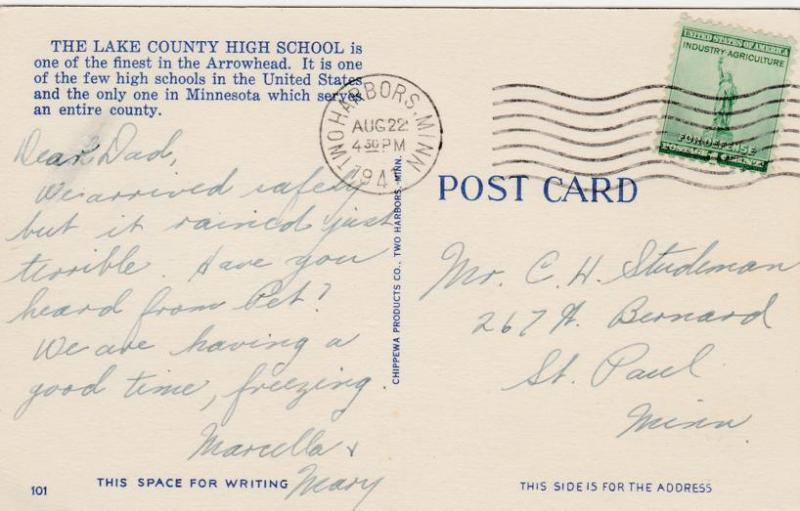 THE LAKE COUNTY HIGH SCHOOL is
one of the finest in the Arrowhead. It is one
of the few high schools in the United States
and the only one in Minnesota which serves
an entire county.
Dear Dad,
We arrived safely
but it rained just
terrible. Have you
heard from Pet?
We are having a
good time, freezing.
Marcella &
Mary
101
THIS SPACE FOR WRITING
CHIPPEWA PRODUCTS CO., TWO HARBORS, MINN.
TWO HARBORS, MINN.
AUG 22
4 30 PM
194
UNITED STATES OF AMERICA
INDUSTRY AGRICULTURE
FOR DEFENSE
POST CARD
Mr. C. H. Studeman
267 W. Bernard
St. Paul
Minn.
THIS SIDE IS FOR THE ADDRESS